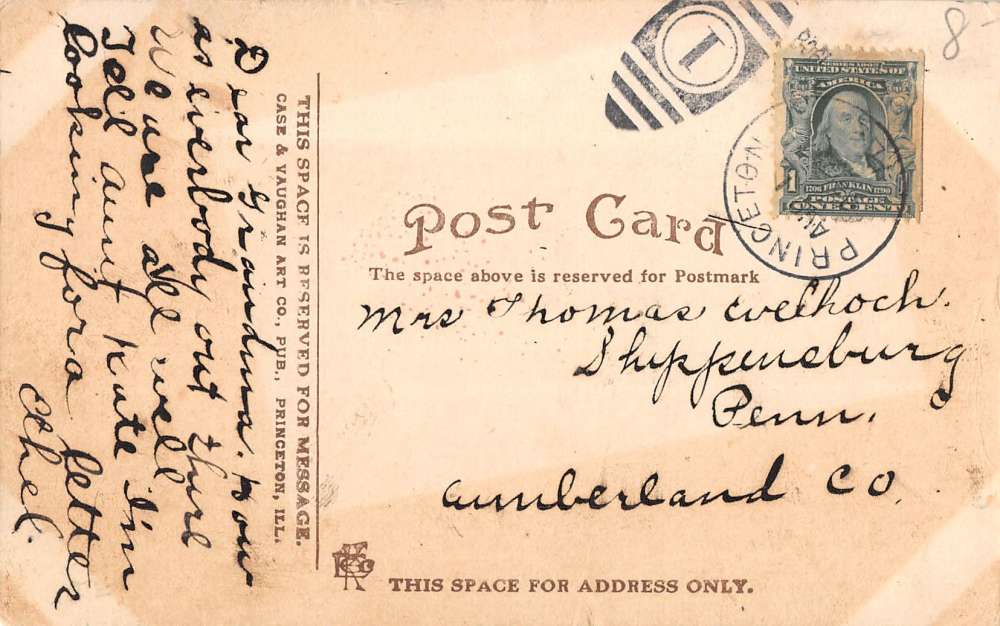 Dear Graindma. How
as everbody out there
We are all well
Tell aunt Kate I'm
looking for a letter
Ethel.
THIS SPACE IS RESERVED FOR MESSAGE.
CASE & VAUGHAN ART CO., PUB., PRINCETON, ILL.
8-
1
SERIES 1902
UNITED STATES OF
AMERICA
1706 FRANKLIN 1790
1
POSTAGE
ONE CENT
PRINCETON
AU
Post Card
The space above is reserved for Postmark
Mrs Thomas
Shippensburg
Penn.
Cumberland Co.
THIS SPACE FOR ADDRESS ONLY.